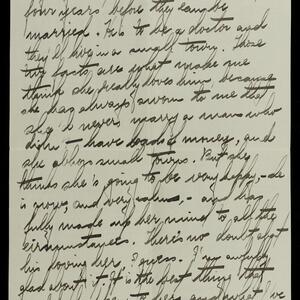 four years before they can be
married. He's to be a doctor and
they'll live in a small town. Those
two facts are what make me
think she really loves him because
she has always sworn to me that
she'd never marry a man who
didn't have money, and
she abhors small towns. But she
thinks she's going to be very happy, - she
is now, and very calm, - and has
fully made up her mind to all the
circumstances. There's no doubt about
his loving her, I guess. I'm awfully
glad about it. It is the best thing that